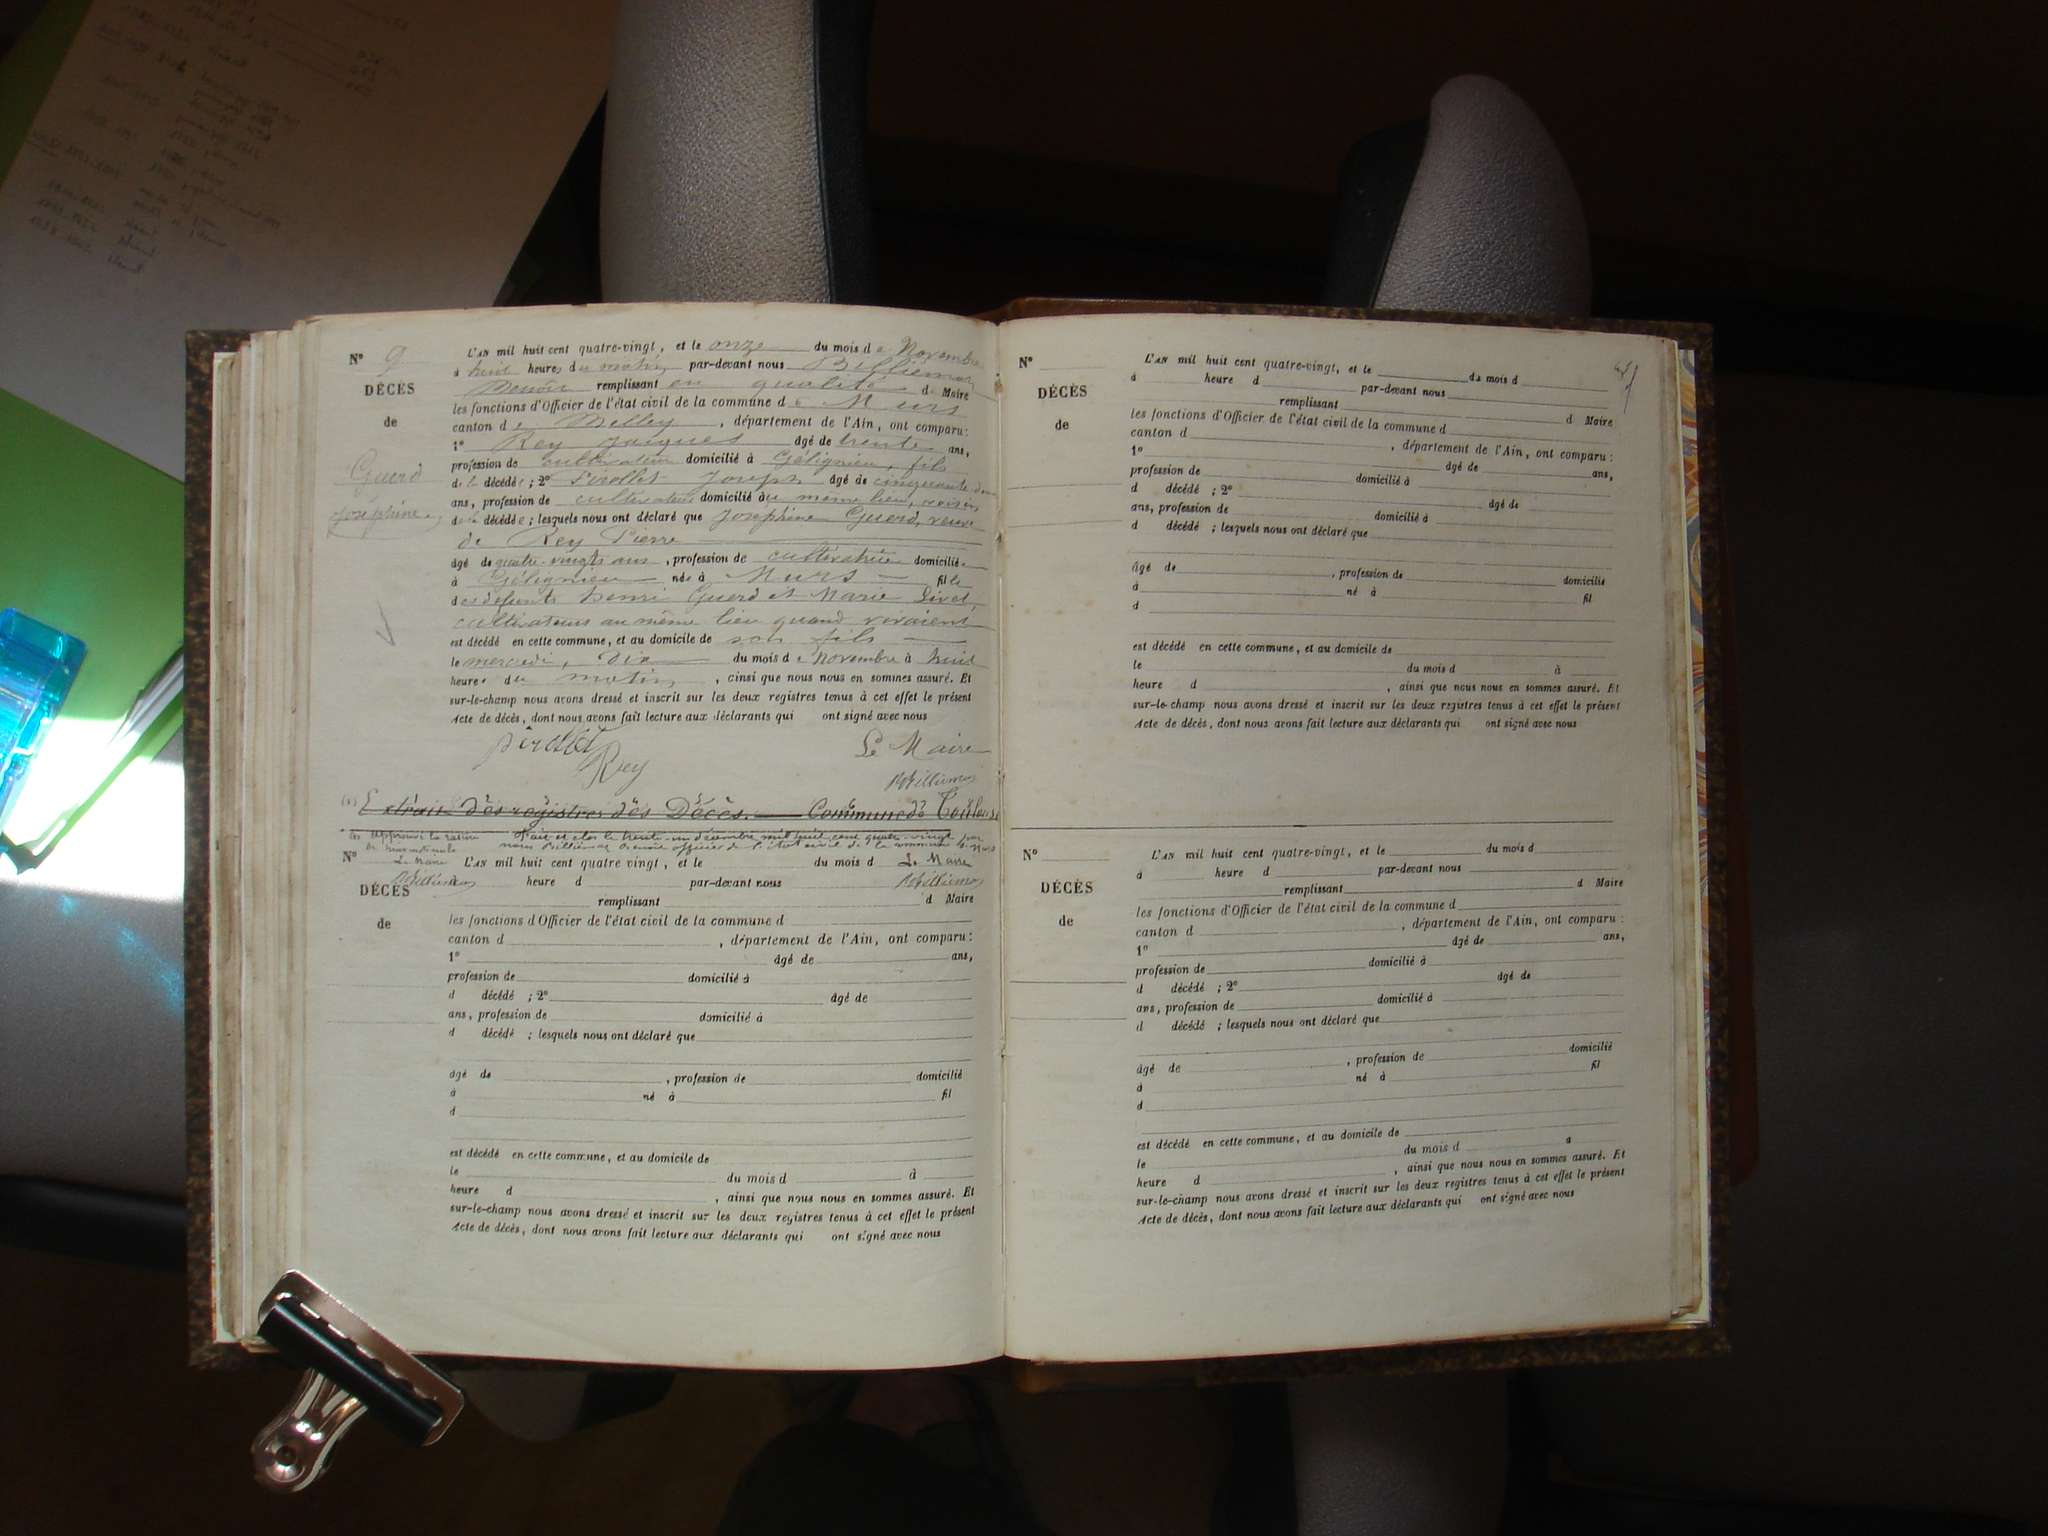 N° 9
DÉCÈS
de
Guerd
Joséphine
L'AN mil huit cent quatre-vingt, et le onze du mois de Novembre
à huit heures du matin par-devant nous Billiemaz
Benoit remplissant en qualité de Maire
les fonctions d'Officier de l'état civil de la commune de Murs
canton de Belley, département de l'Ain, ont comparu:
1° Rey Jacques âgé de trente ans,
profession de cultivateur domicilié à Gélignieu, fils
de la décédée; 2° Pirollet Joseph âgé de cinquante-deux
ans, profession de cultivateur domicilié au même lieu, voisin
de la décédée; lesquels nous ont déclaré que Joséphine Guerd, veuve
de Rey Pierre
âgé de quatre-vingts ans, profession de cultivatrice domiciliée
à Gélignieu née à Murs fille
des défunts henri Guerd et Marie
cultivateurs au même lieu quand vivaient
est décédé en cette commune, et au domicile de son fils
le mercredi, dix du mois de Novembre à huit
heures du matin, ainsi que nous nous en sommes assuré. Et
sur-le-champ nous avons dressé et inscrit sur les deux registres tenus à cet effet le présent
Acte de décès, dont nous avons fait lecture aux déclarants qui ont signé avec nous
pirollet Rey Le Maire
Billiemaz
Extrait des registres des Décès. Commune de Toulouse
Approuvé la rature Fait et clos le trente-un décembre mil huit cent quatre-vingt par
nous Billiemaz Benoit officier de l'état civil de la commune de Murs
Le Maire Le Maire
Billiemaz Billiemaz
N°
DÉCÈS
de
L'AN mil huit cent quatre vingt, et le du mois d
à heure d par-devant nous
remplissant d Maire
les fonctions d'Officier de l'état civil de la commune d
canton d , département de l'Ain, ont comparu:
1° âgé de ans,
profession de domicilié à
d décédé ; 2° âgé de
ans, profession de domicilié à
d décédé ; lesquels nous ont déclaré que
âgé de , profession de domicilié
à né à fil
d
est décédé en cette commune, et au domicile de
le du mois d à
heure d , ainsi que nous nous en sommes assuré. Et
sur-le-champ nous avons dressé et inscrit sur les deux registres tenus à cet effet le présent
Acte de décès, dont nous avons fait lecture aux déclarants qui ont signé avec nous
N°
DÉCÈS
de
L'AN mil huit cent quatre-vingt, et le du mois d
à heure d par-devant nous
remplissant d Maire
les fonctions d'Officier de l'état civil de la commune d
canton d , département de l'Ain, ont comparu:
1° âgé de ans,
profession de domicilié à
d décédé ; 2° âgé de
ans, profession de domicilié à
d décédé ; lesquels nous ont déclaré que
âgé de , profession de domicilié
à né à fil
d
est décédé en cette commune, et au domicile de
le du mois d à
heure d , ainsi que nous nous en sommes assuré. Et
sur-le-champ nous avons dressé et inscrit sur les deux registres tenus à cet effet le présent
Acte de décès, dont nous avons fait lecture aux déclarants qui ont signé avec nous
N°
DÉCÈS
de
L'AN mil huit cent quatre-vingt, et le du mois d
à heure d par-devant nous
remplissant d Maire
les fonctions d'Officier de l'état civil de la commune d
canton d , département de l'Ain, ont comparu:
1° âgé de ans,
profession de domicilié à
d décédé ; 2° âgé de
ans, profession de domicilié à
d décédé ; lesquels nous ont déclaré que
âgé de , profession de domicilié
à né à fil
d
est décédé en cette commune, et au domicile de
le du mois d à
heure d , ainsi que nous nous en sommes assuré. Et
sur-le-champ nous avons dressé et inscrit sur les deux registres tenus à cet effet le présent
Acte de décès, dont nous avons fait lecture aux déclarants qui ont signé avec nous